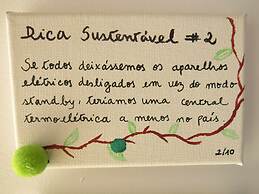 Dica Sustentável #2
Se todos deixássemos os aparelhos
elétricos desligados em vez do modo
stand by, teríamos uma central
termoelétrica a menos no país
2/10